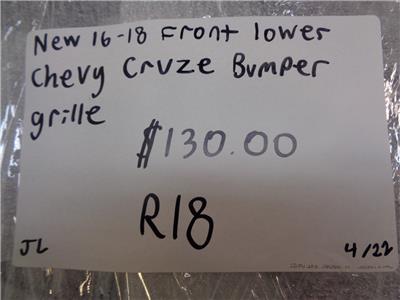 New 16-18 Front lower
Chevy Cruze Bumper
grille
$130.00
R18
JL
4/22